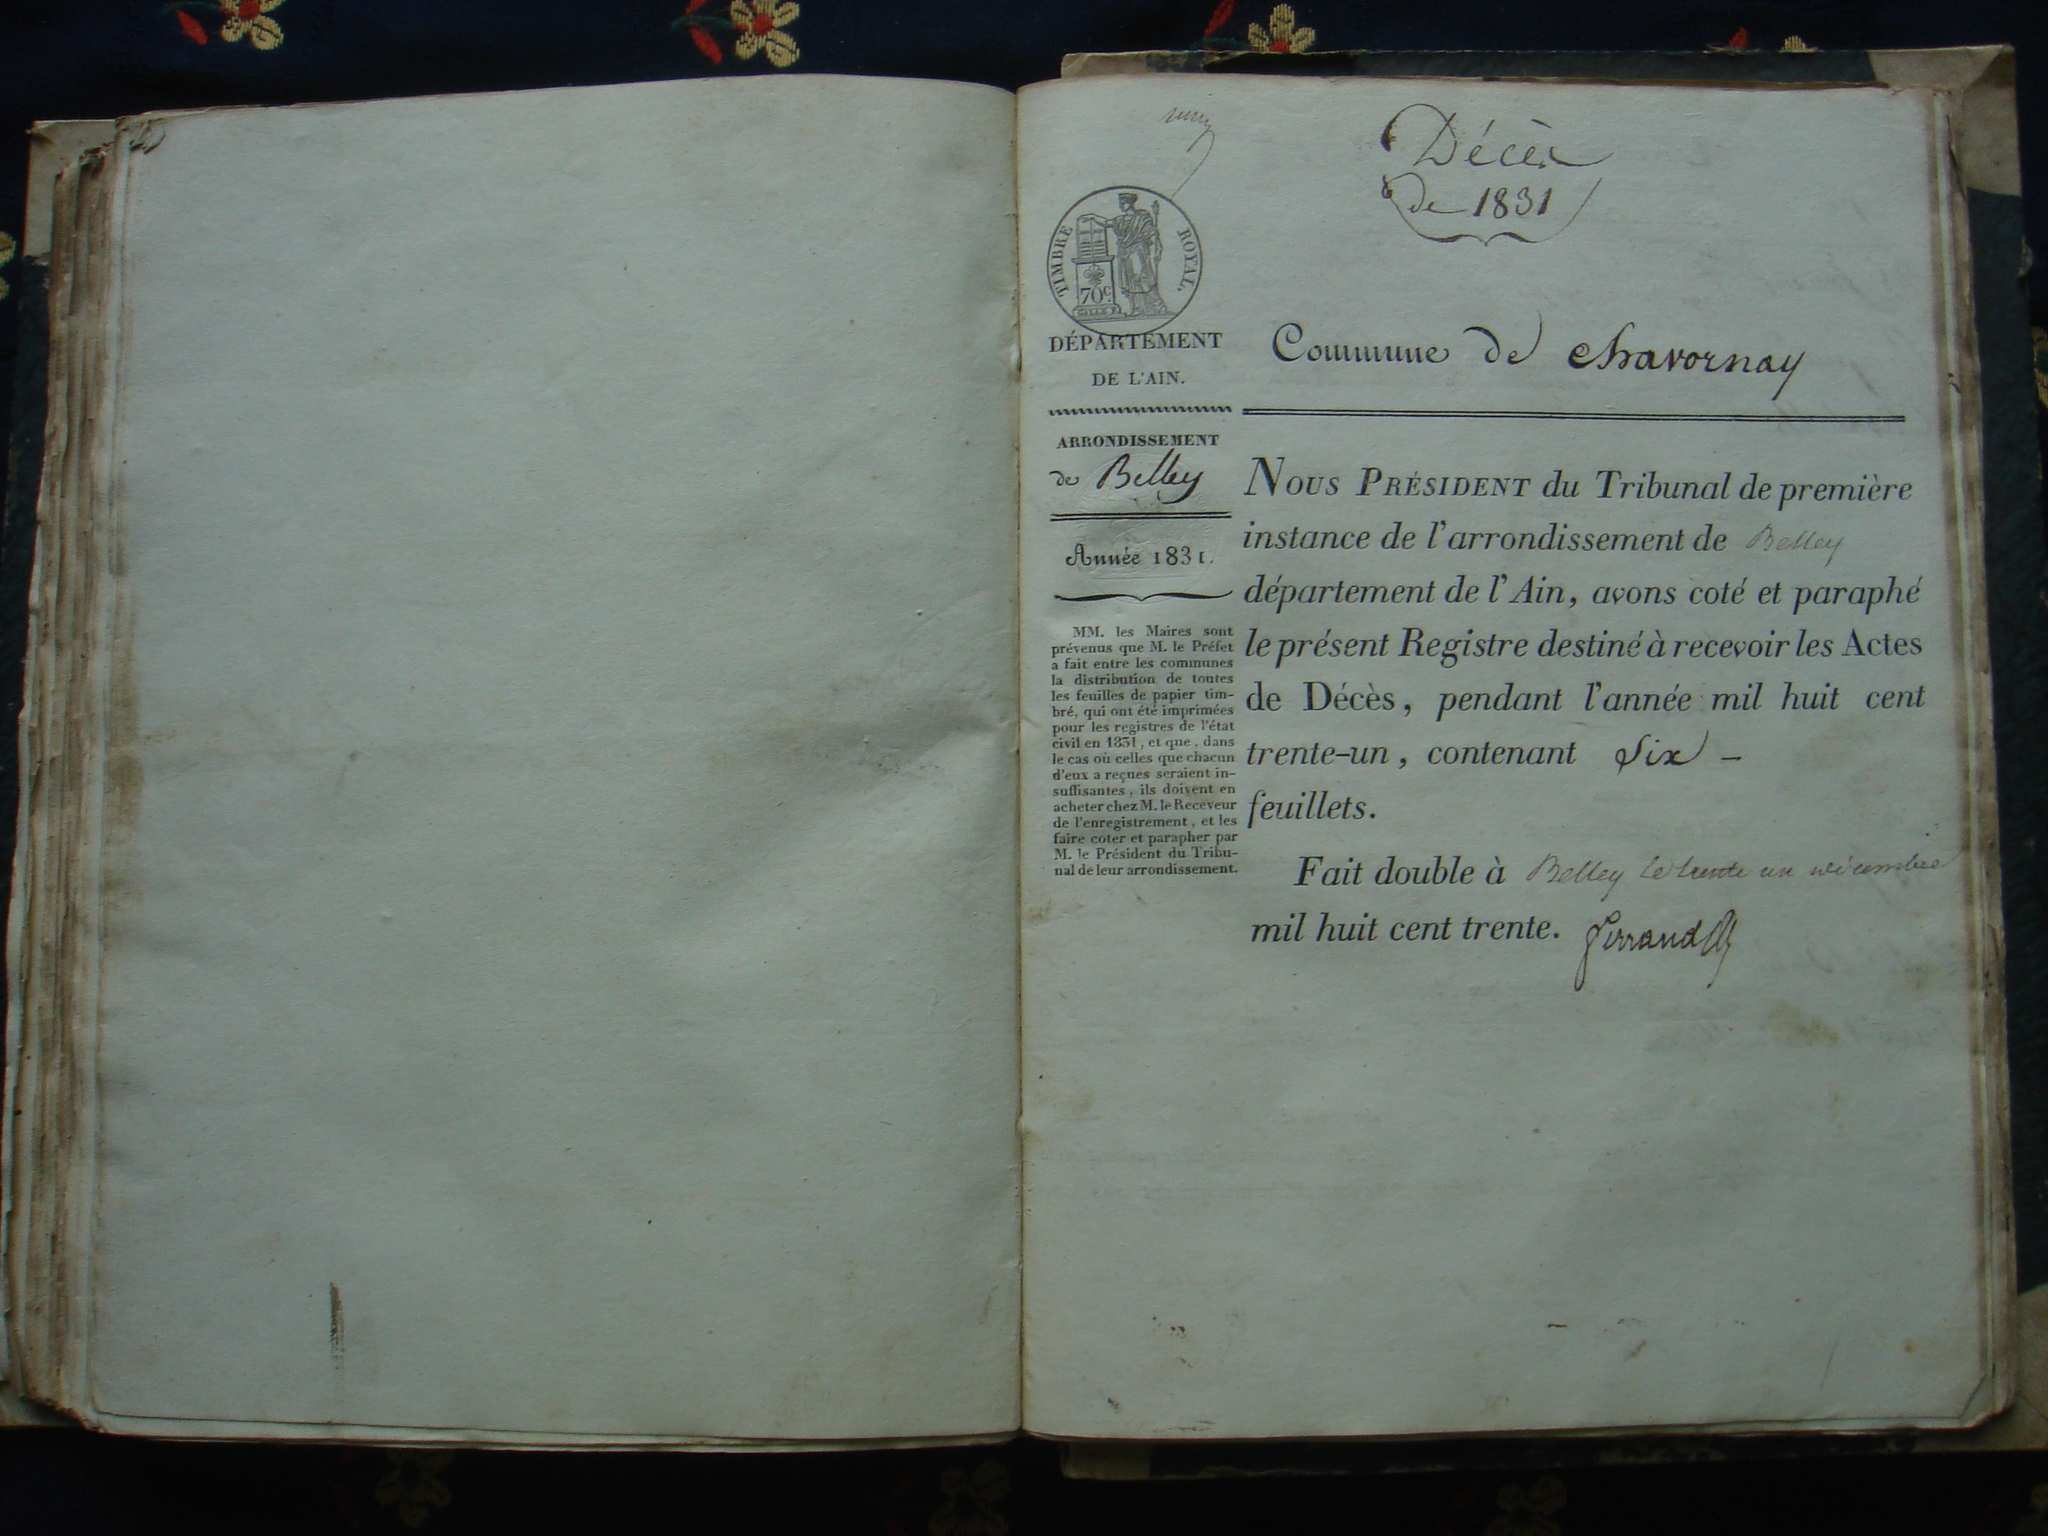 Décès
de 1831
TIMBRE ROYAL.
70c
DÉPARTEMENT
DE L'AIN.
Commune de Chavornay
ARRONDISSEMENT
de Belley
Année 1831.
MM. les Maires sont
prévenus que M. le Préfet
a fait entre les communes
la distribution de toutes
les feuilles de papier tim-
bré, qui ont été imprimées
pour les registres de l'état
civil en 1831, et que, dans
le cas où celles que chacun
d'eux a reçues seraient in-
suffisantes, ils doivent en
acheter chez M. le Receveur
de l'enregistrement, et les
faire coter et parapher par
M. le Président du Tribu-
nal de leur arrondissement.
NOUS PRÉSIDENT du Tribunal de première
instance de l'arrondissement de Belley
département de l'Ain, avons coté et paraphé
le présent Registre destiné à recevoir les Actes
de Décès, pendant l'année mil huit cent
trente-un, contenant Six -
feuillets.
Fait double à Belley le trente un décembre
mil huit cent trente.